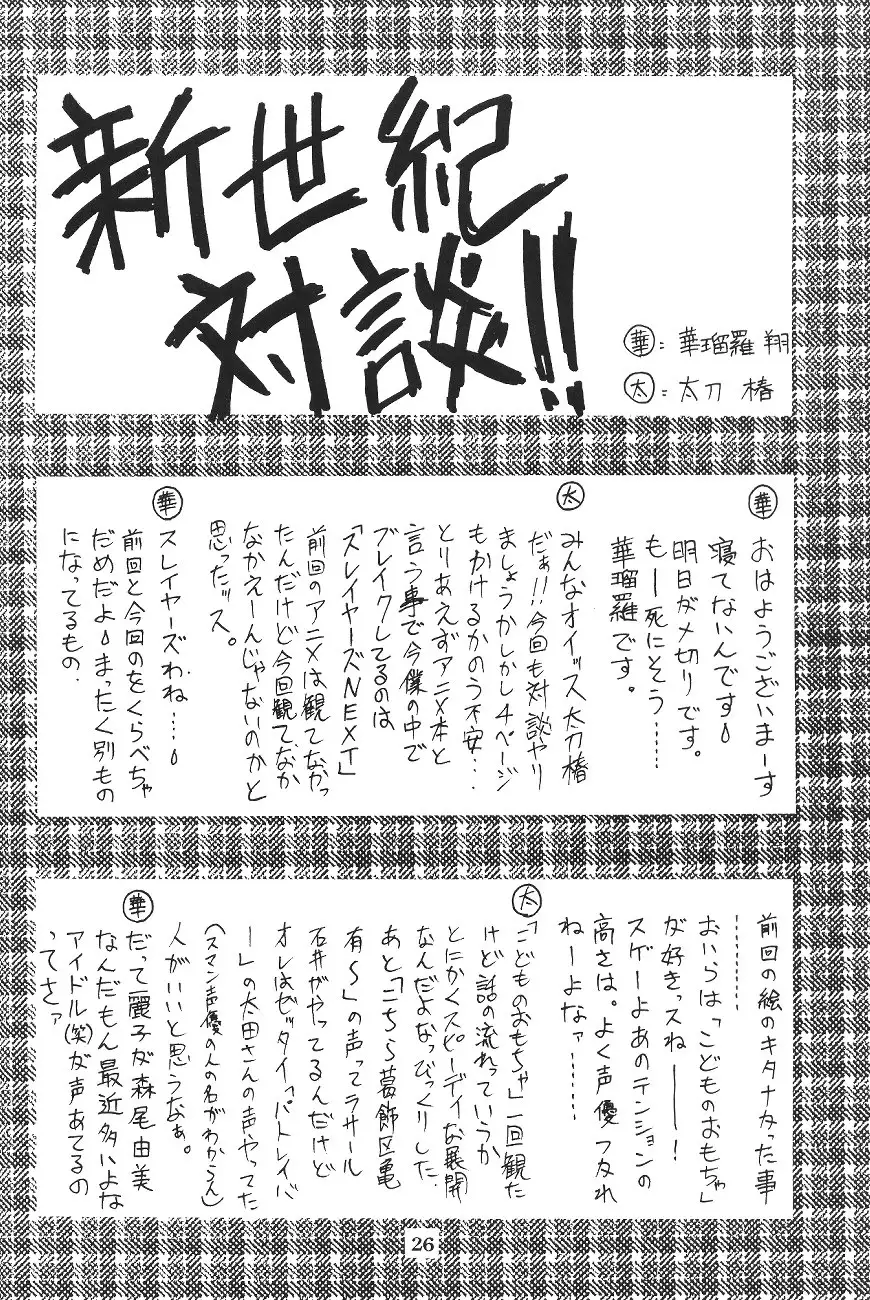 新世紀
対談!!
華：華瑠羅 翔
太：太刀 椿
華
おはようございまーす
寝てないんです
明日が〆切りです。
もー死にそう………
華瑠羅です。
太
みんなオイッス太刀椿
だぁ!!今回も対談ヤリ
ましょうかしかし4ページ
もかけるかのう不安…
とりあえずアニメ本と
言う事で今僕の中で
ブレイクしてるのは
「スレイヤーズNEXT」
前回のアニメは観てなかっ
たんだけど今回観てなか
なかえーんじゃないのかと
思ったッス。
華
スレイヤーズわね……
前回と今回のをくらべちゃ
だめだよまったく別もの
になってるもの．
前回の絵のキタナかった事
…………
おいらは「こどものおもちゃ」
が好きっスねー！
スゲーよあのテンションの
高さは。よく声優つぶれ
ねーよなァ………
太
「こどものおもちゃ」一回観た
けど話の流れっていうか
とにかくスピーディな展開
なんだよなっびっくりした。
あと「こちら葛飾区亀
有〜」の声ってラサール
石井がやってるんだけど
オレはゼッタイ「パトレイバ
ー」の太田さんの声やってた
（スマン声優の人の名がわからん）
人がいいと思うなぁ。
華
だって麗子が森尾由美
なんだもん最近多いよな
アイドル(笑)が声あてるの
ってさァ
26